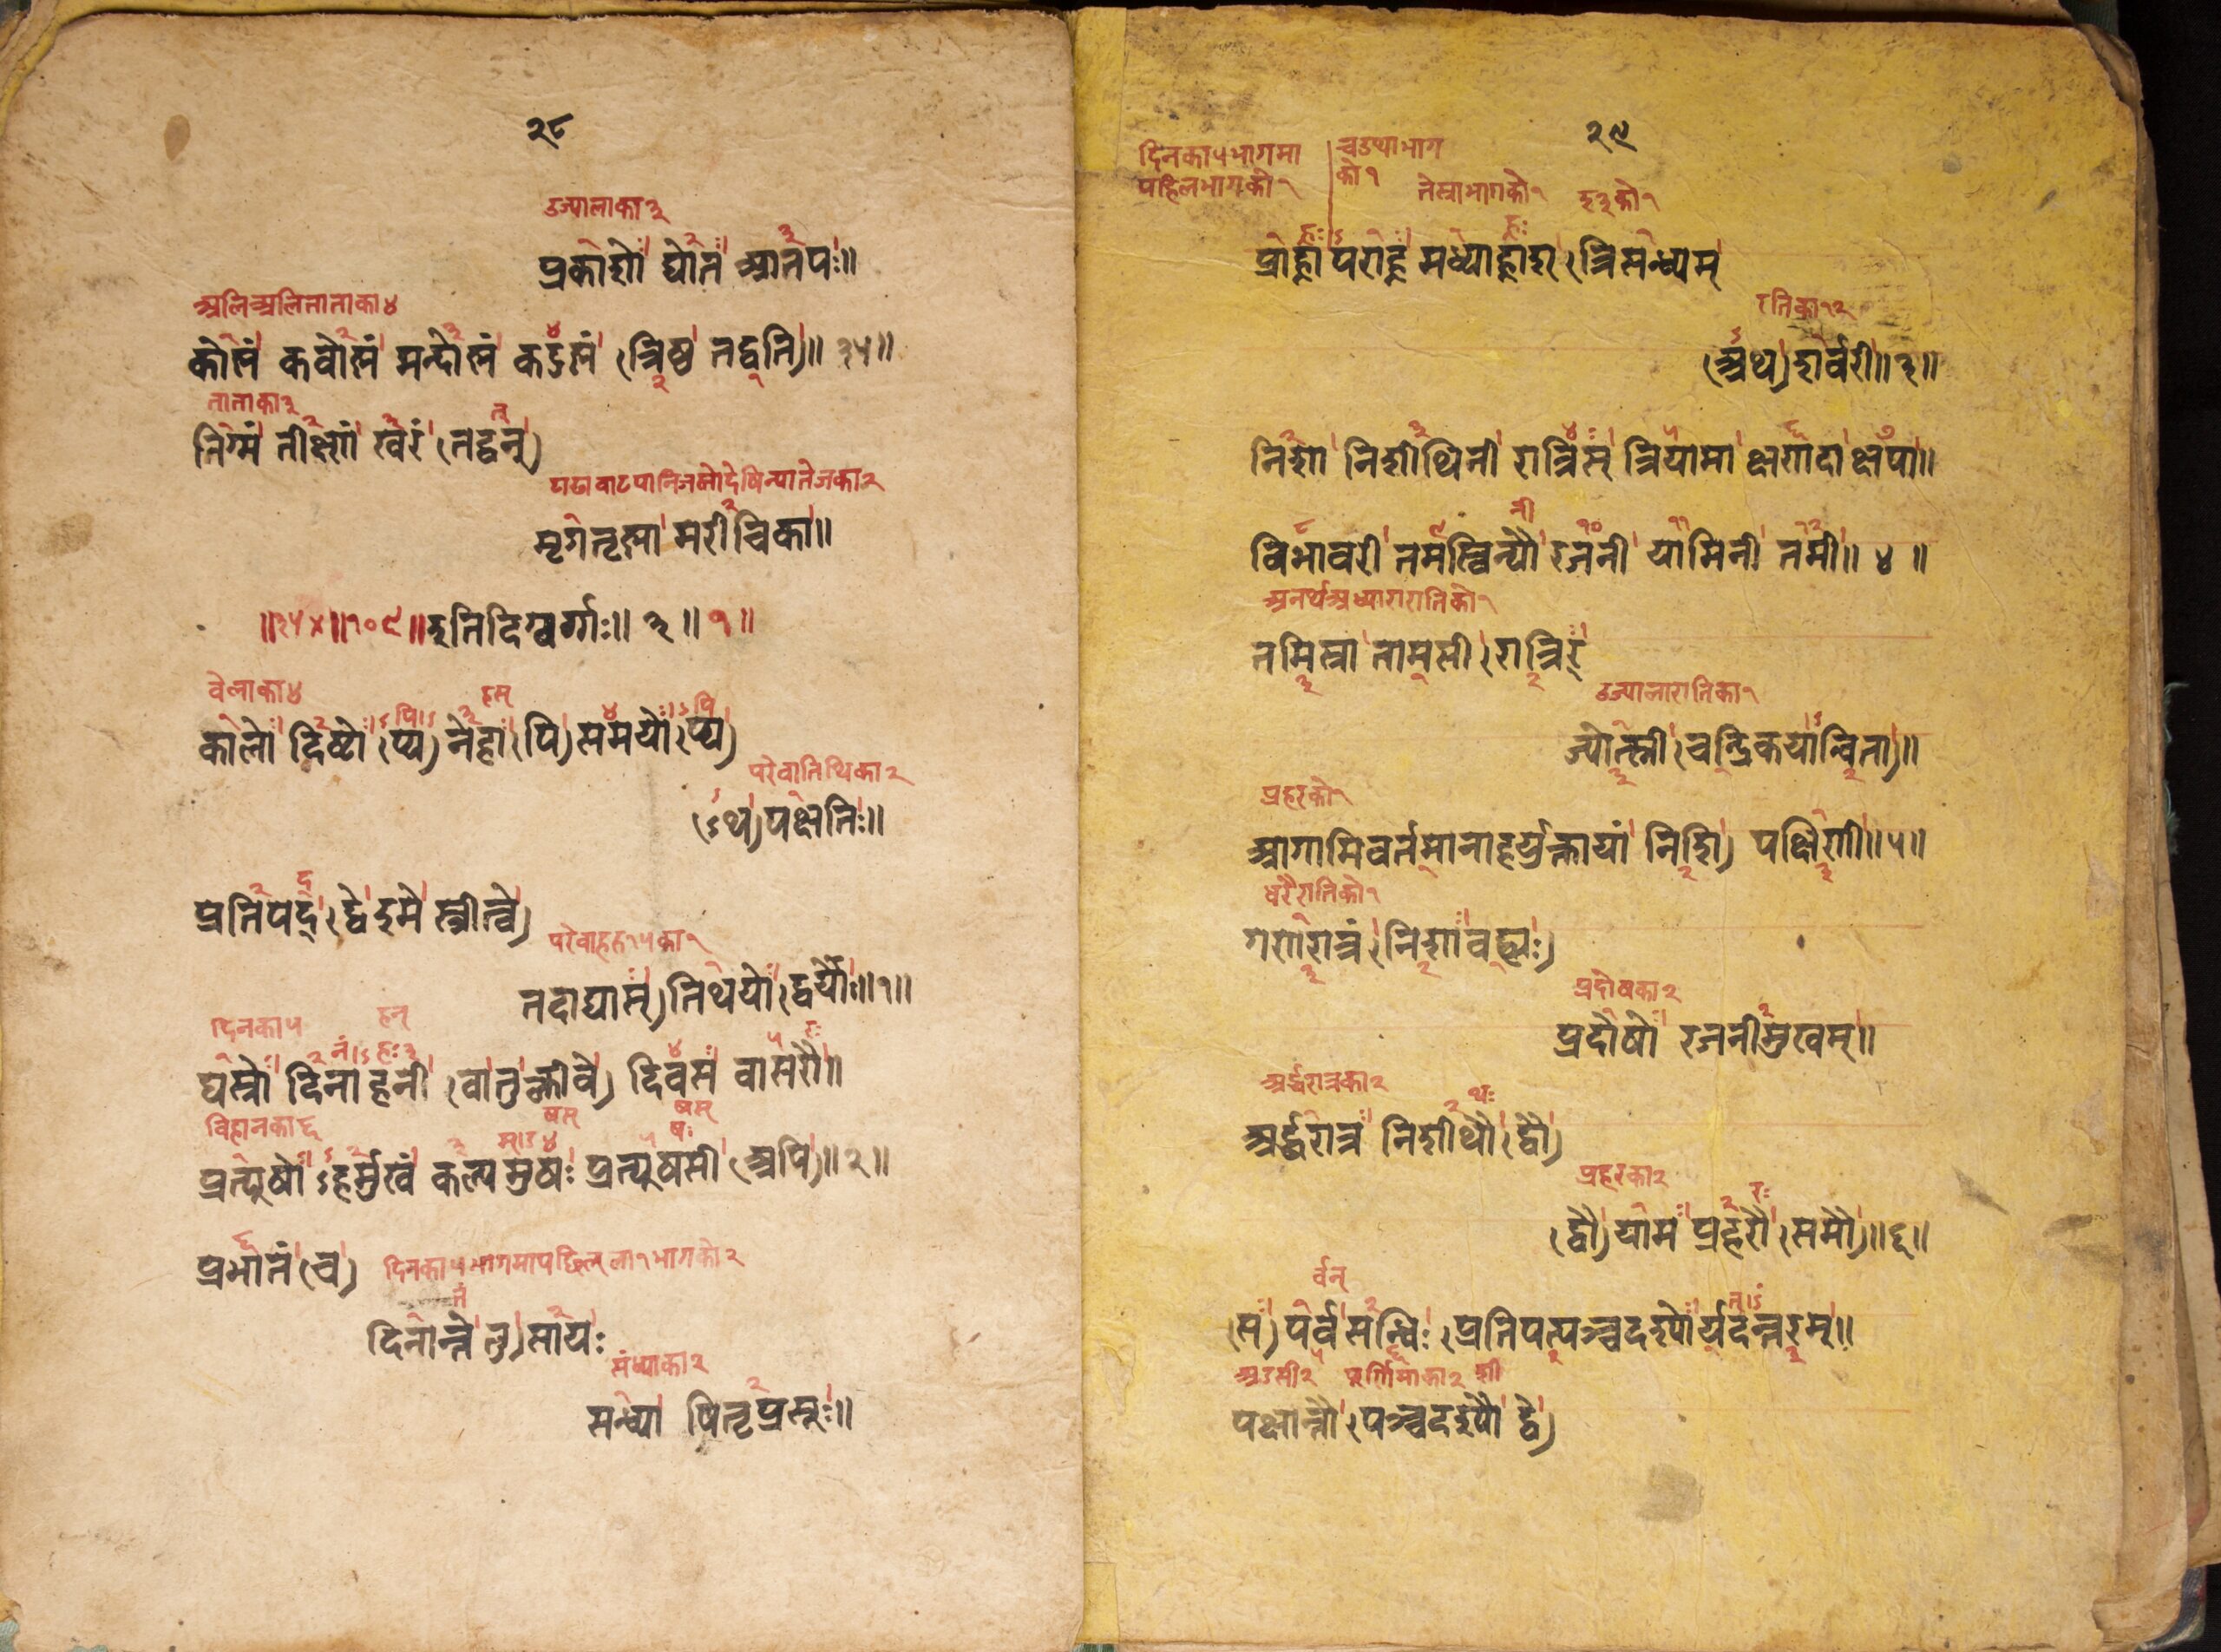 २८
उज्यालाका३
प्रकाशो द्योत आतपः॥
अलिअलिताताका४
कोसं कवोसं मन्दोसं कदुसं (त्रिषु तद्वति)॥ ३५॥
ताताका३
तिग्मं तीक्ष्णं खरं (तद्वत्)
मृगतृष्णा मरीचिका॥
॥३५४॥१०९॥इति दिग्वर्गः॥ ३ ॥ १॥
वेलाका४
कालो दिष्टो (प्य) नेहा (पि) समयो (प्य)
परेवातिथिका२
(ऽथ) पक्षतिः॥
प्रतिपद् (द्वे इमे स्त्रीत्वे)
तदाद्यास् (तिथयो (द्वयोः॥१॥
दिनका५
घस्रो दिना हनी (वा तु क्लीवे) दिवस वासरौ॥
विहानका६
प्रत्यूषो ऽहर्मुखं कल्य मुषः प्रत्युषसी (अपि)॥२॥
प्रभातं (च)
दिनका५भागमापछिल्ला१भागको२
दिनान्ते (तु) सायः
संध्याका२
सन्ध्या पितृप्रसूः॥
२९
दिनका५भागमा
पहिलभागको१
चउथाभाग
को१
तेस्राभागको१
प्राह्णा पराह्ण मध्याह्नाश् (त्रिसन्ध्यम्
रातिका१२
(अथ) शर्वरी॥३॥
निशा निशीथिनी रात्रिस् त्रियामा क्षणदा क्षपा॥
विभावरी तमस्विन्यौ रजनी यामिनी तमी॥ ४ ॥
तमिस्रा तामसी (रात्रिर्
उज्यालारातिका१
ज्योत्स्नी (चन्द्रिकयान्विता)॥
प्रहरको१
आगामिवर्तमानाहर्युक्तायां निशि) पक्षिणी॥५॥
धेरैरातिको१
गणरात्रं (निशा बह्व्यः)
प्रदोषका२
प्रदोषो रजनीमुखम्॥
अर्द्धरात्रका२
अर्द्धरात्र निशीथौ (द्वौ)
प्रहरका२
(द्वौ) याम प्रहरौ (समौ)॥६॥
(स) पर्व सन्धिः (प्रतिपत्पञ्चदश्योर्यदन्तरम्॥
औसी२ पूर्णिमाका२
पक्षान्तौ (पञ्चदश्यौ द्वे)